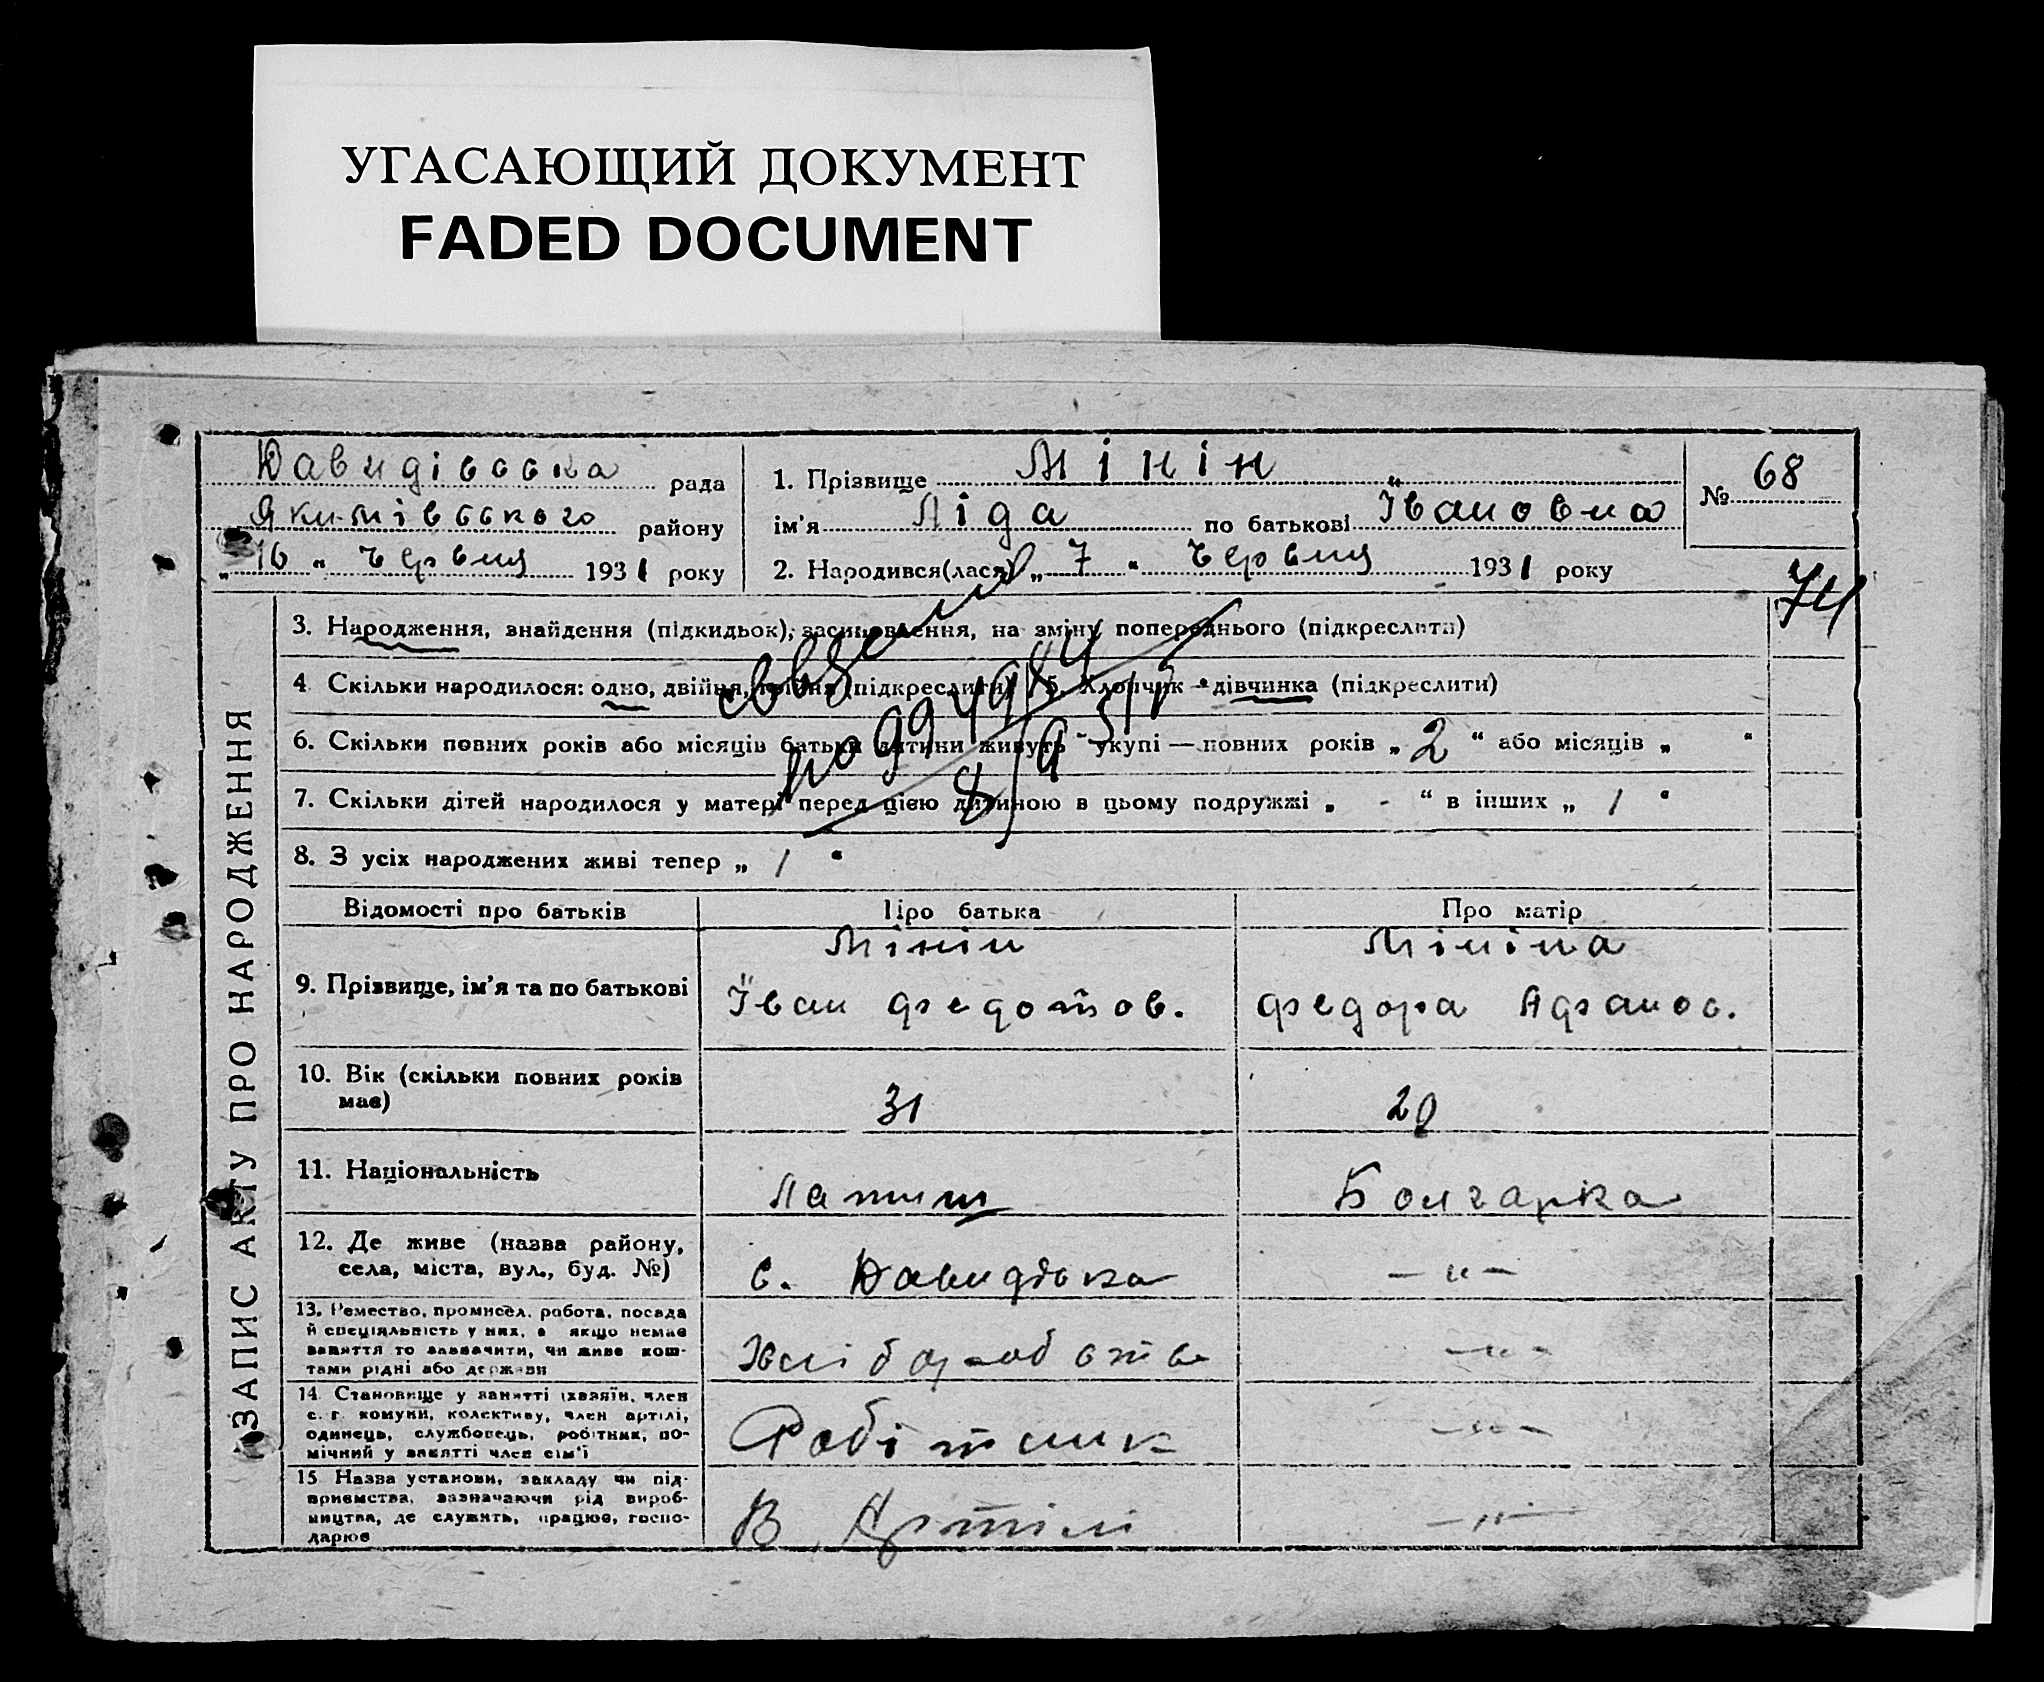 УГАСАЮЩИЙ ДОКУМЕНТ
FADED DOCUMENT
Давидівська рада
Якимівського району
„16“ червня 1931 року
1. Прізвище Мінін
ім'я Ліда по батькові Івановна
№ 68
2. Народився(лася) „7“ червня 1931 року
74
3. Народження, знайдення (підкидьок), засиновлення, на зміну попереднього (підкреслити)
4 Скільки народилося: одно, двійня, трійня (підкреслити) 5. Хлопчик – дівчинка (підкреслити)
6. Скільки повних років або місяців батьки дитини живуть укупі — повних років „2“ або місяців „ “
7. Скільки дітей народилося у матері перед цією дитиною в цьому подружжі „ - “ в інших „ 1 “
8. З усіх народжених живі тепер „ 1 “
ЗАПИС АКТУ ПРО НАРОДЖЕННЯ
Відомості про батьків Про батька Про матір
9. Прізвище, ім'я та по батькові
Мінін
Іван Федотов.
Мініна
Федора Афанос.
10. Вік (скільки повних років має)
31
11. Національність
Латиш
Болгарка
12. Де живе (назва району,
села, міста, вул., буд. №)
с. Давидівка
— „ —
13. Ремество, промисел, робота, посада
й спеціяльність у них, а якщо немає
заняття то зазначити, чи живе кош-
тами рідні або держави
Хліборобство
— „ —
14. Становище у занятті (хазяїн, член
с. г. комуни, колективу, член артілі,
одинець, службовець, робітник, по-
мічний у занятті член сім'ї
Робітник
— „ —
15 Назва установи, закладу чи під-
приємства, зазначаючи рід вироб-
ництва, де служить, працює, госпо-
дарює
В Артілі
— „ —